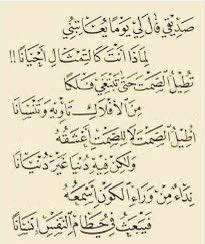 صَدِيْقِي قَالَ لِي يَوْمًا يُعَاتِبُنِي
لِمَاذَا أَنْتَ كَالتِّمْثَالِ أَحْيَانًا !!
تُطِيْلُ الصَّمْتَ حَتَّى تَنْتَقِي فَلَكًا
مِنَ الْأَفْلَاكِ تَأْوِيْهِ وَتَنْسَانَا
أُطِيْلُ الصَّمْتَ لَا لِلصَّمْتِ أَعْشَقُهُ
وَلَكِنْ فِيْهِ دُنْيَا غَيْرَ دُنْيَانَا
نِدَاءٌ مِنْ وَرَاءِ الْكَوْنِ أَسْمَعُهُ
فَيَبْعَثُ فِي حُطَامِ النَّفْسِ إِنْسَانَا